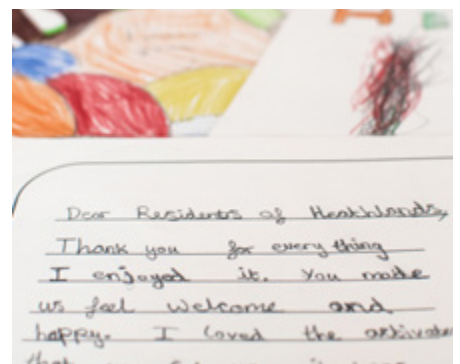 Dear Residents of Heathlands,
Thank you for every thing
I enjoyed it. You made
us feel welcome and
happy. I loved the
that